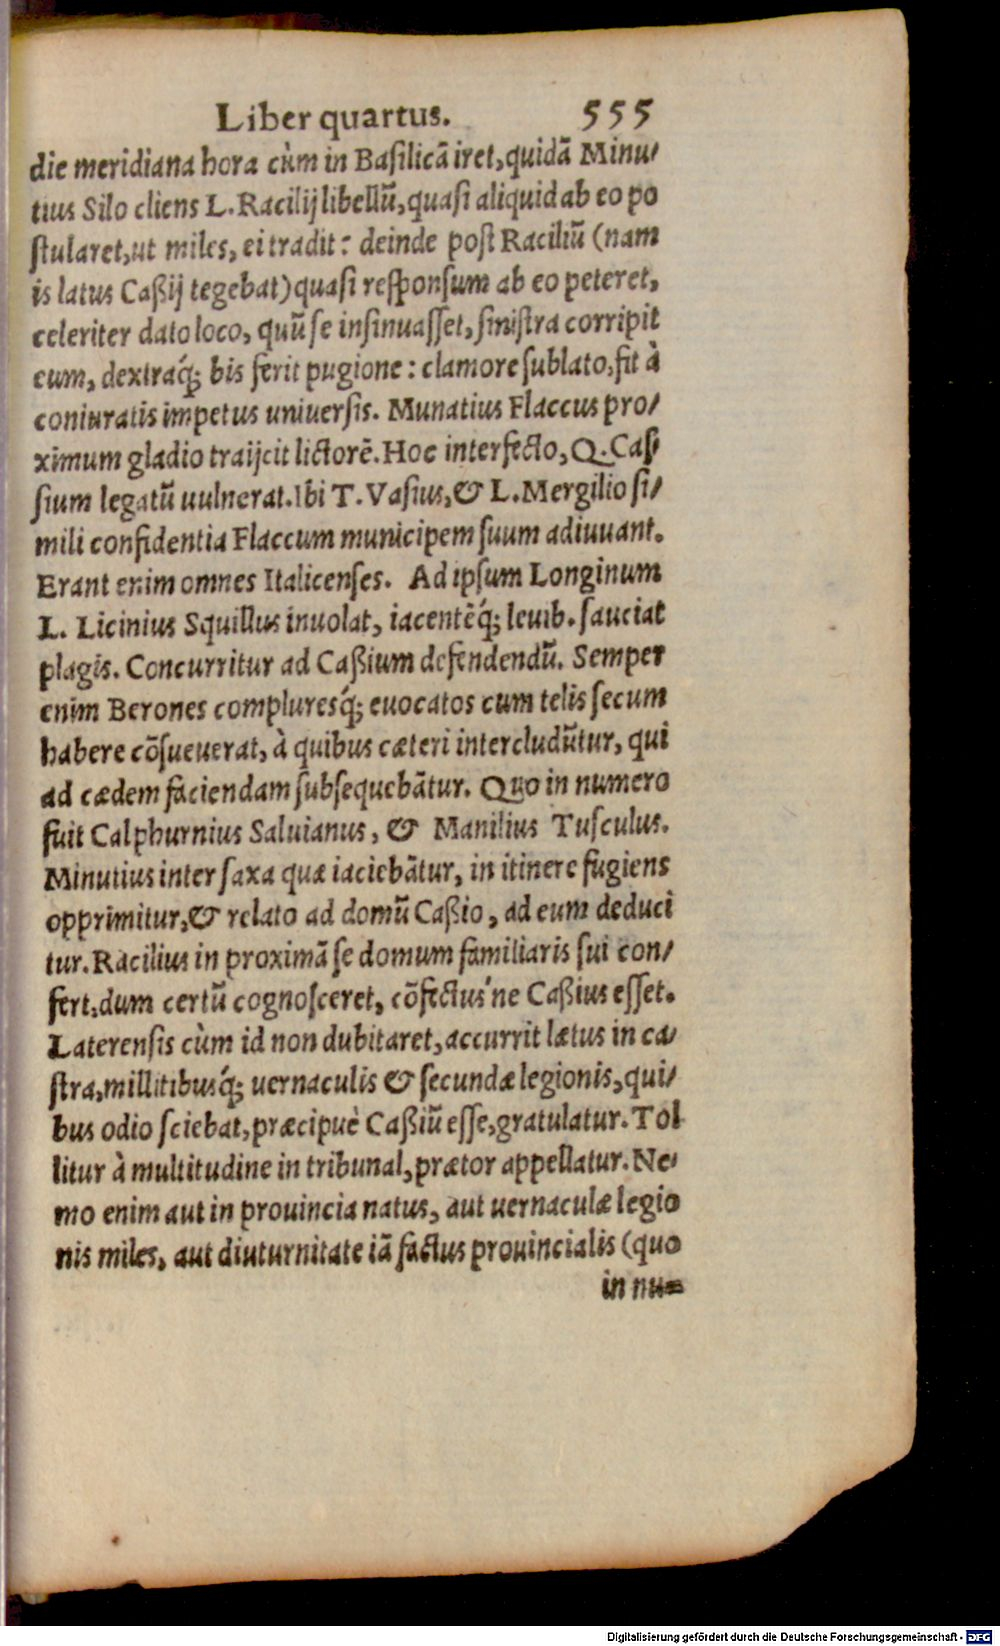 Liber quartus. 555
die meridiana hora cùm in Basilicā iret, quidā Minu/
tius Silo cliens L. Racilij libellū, quasi aliquid ab eo po
stularet, ut miles, ei tradit: deinde post Raciliū (nam
is latus Caßij tegebat) quasi responsum ab eo peteret,
celeriter dato loco, quū se insinuasset, sinistra corripit
eum, dextraq́; bis ferit pugione: clamore sublato, fit à
coniuratis impetus uniuersis. Munatius Flaccus pro/
ximum gladio traijcit lictorē. Hoc interfecto, Q. Cas
sium legatū uulnerat. Ibi T. Vasius, & L. Mergilio si/
mili confidentia Flaccum municipem suum adiuuant.
Erant enim omnes Italicenses. Ad ipsum Longinum
L. Licinius Squillus inuolat, iacentēq́; leuib. sauciat
plagis. Concurritur ad Caßium defendendū. Semper
enim Berones compluresq́; euocatos cum telis secum
habere cōsueuerat, à quibus cæteri intercludūtur, qui
ad cædem faciendam subsequebātur. Quo in numero
fuit Calphurnius Saluianus, & Manilius Tusculus.
Minutius inter saxa quæ iaciebātur, in itinere fugiens
opprimitur, & relato ad domū Caßio, ad eum deduci
tur. Racilius in proximā se domum familiaris sui con/
fert, dum certū cognosceret, cōfectus'ne Caßius esset.
Laterensis cùm id non dubitaret, accurrit lætus in ca/
stra, millitibusq́; uernaculis & secundæ legionis, qui/
bus odio sciebat, præcipuè Caßiū esse, gratulatur. Tol
litur à multitudine in tribunal, prætor appellatur. Ne/
mo enim aut in prouincia natus, aut uernaculæ legio
nis miles, aut diuturnitate iā factus prouincialis (quo
in nu=
Digitalisierung gefördert durch die Deutsche Forschungsgemeinschaft - DFG